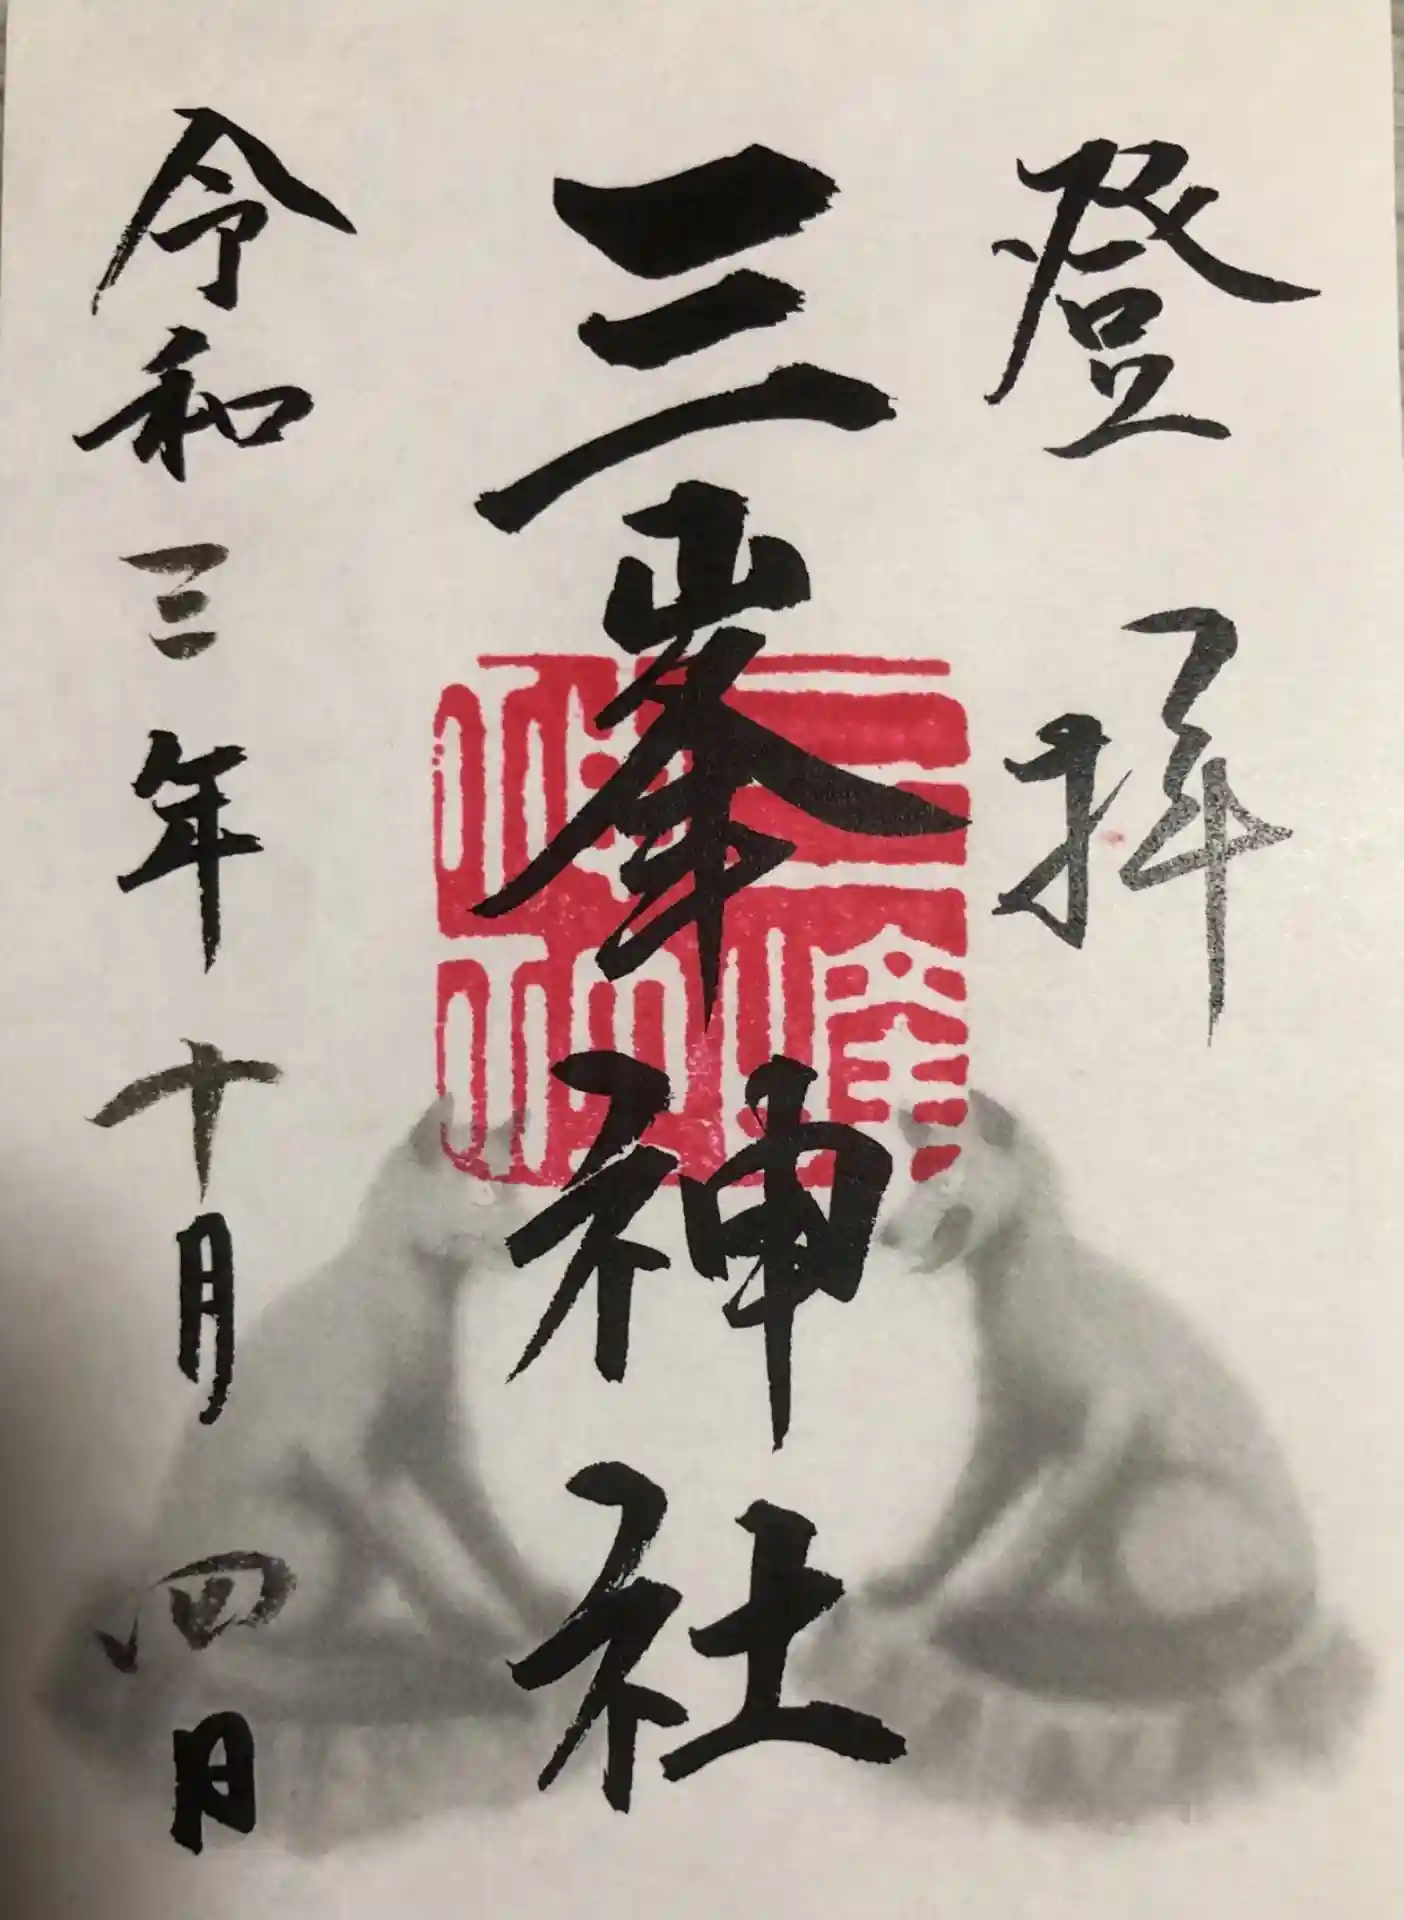 登拝
三峯神社
三峯神社
令和三年十月四日